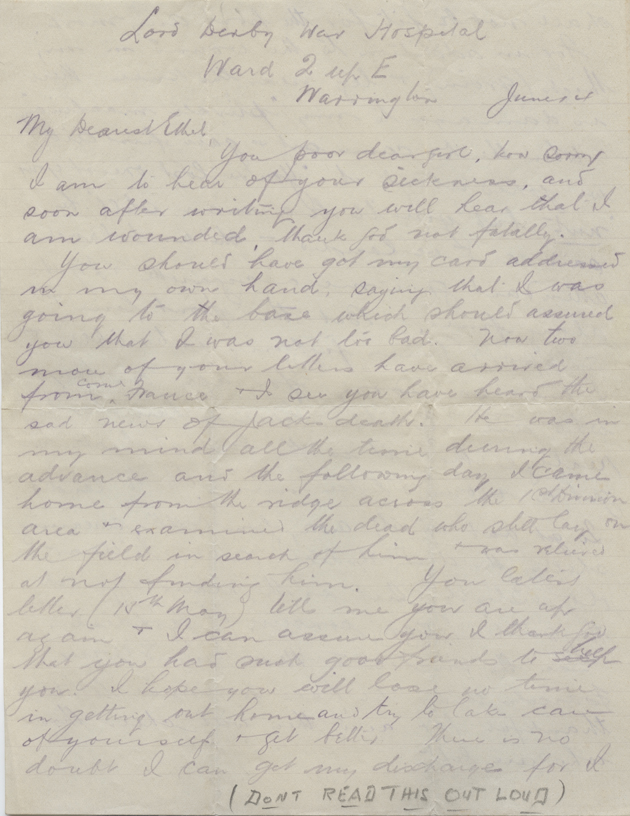 Lord Derby War Hospital
Ward 2 up E
Warrington June
My Dearest Ethel,
You poor dear girl, how sorry
I am to hear of your sickness, and
soon after writing you will hear that I
am wounded, thank God not fatally.
You should have got my card addressed
in my own hand, saying that I was
going to the base which should assured
you that I was not too bad. Now two
more of your letters have arrived
from France + I see you have heard the
sad news of Jacks death. He was in
my mind all the time during the
advance and the following day I came
home from the ridge across the 1st Division
area + examined the dead who still lay on
the field in search of him + was relieved
at not finding him. You later
letter (15th May) tells me you are up
again + I can assure you I thank God
that you had such good friends to help
you. I hope you will lose no time
in getting out home and try to take care
of yourself + get better. There is no
doubt I can get my discharge for I
(DONT READ THIS OUT LOUD)